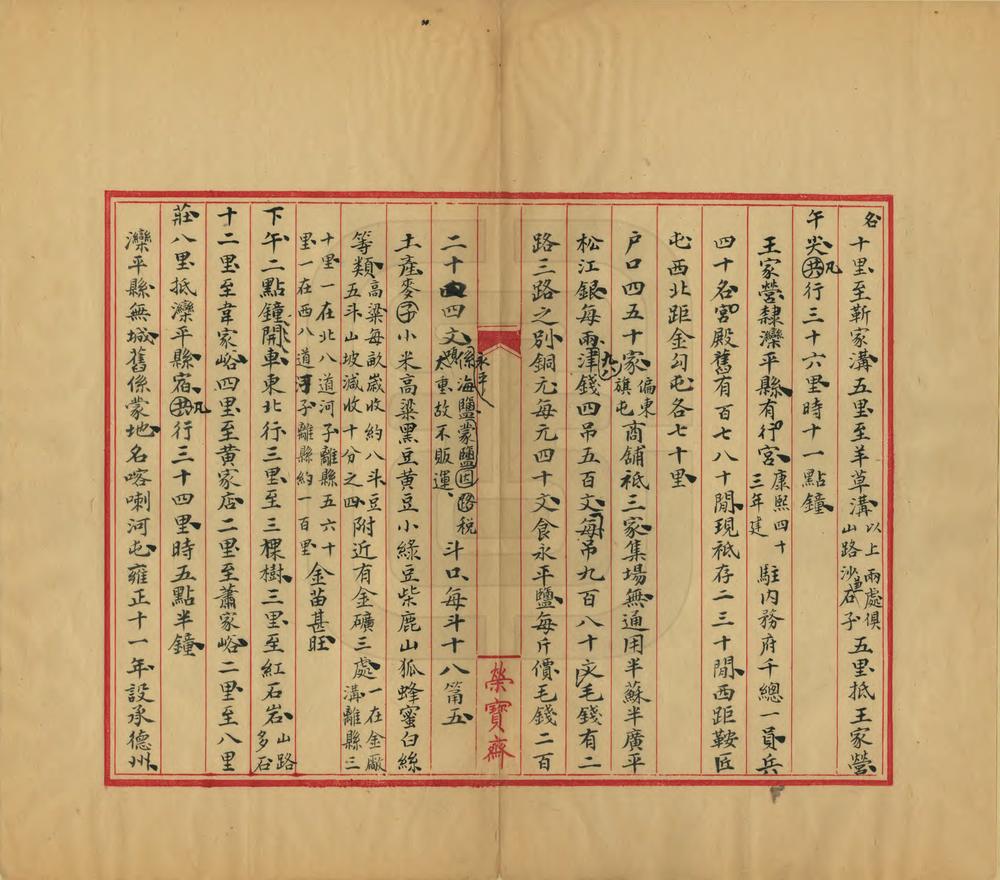 名十里至靳家溝五里至羊草溝以上兩處俱山路沙石子五里抵王家營
午尖共凡行三十六里時十一點鐘
王家營隸灤平縣有行宮康熙四十三年建駐內務府千總一員兵
四十名宮殿舊有百七八十間現祗存二三十間西距鞍匠
屯西北距金勾屯各七十里
戶口四五十家偏東旗屯商舖祗三家集場無通用半蘇半廣平
松江銀每兩津錢四吊五百文每吊九百八十文毛錢有二
路三路之別銅元每元四十文食永平鹽每斤價毛錢二百
榮寶齋
二十四文係海鹽蒙鹽因路稅太重故不販運斗口每斗十八筩五
土產麥子小米高粱黑豆黃豆小綠豆柴鹿山狐蜂蜜白絲
等類高粱每畝歲收約八斗豆五斗山坡減收十分之四附近有金礦三處一在金廠溝離縣三
十里一在北八道河子離縣五六十里一在西八道河子離縣約一百里金苗甚旺
下午二點鐘開車東北行三里至三棵樹三里至紅石岩山路多石
十二里至韋家峪四里至黃家店二里至蕭家峪二里至八里
莊八里抵灤平縣宿共凡行三十四里時五點半鐘
灤平縣無城舊係蒙地名喀喇河屯雍正十一年設承德州